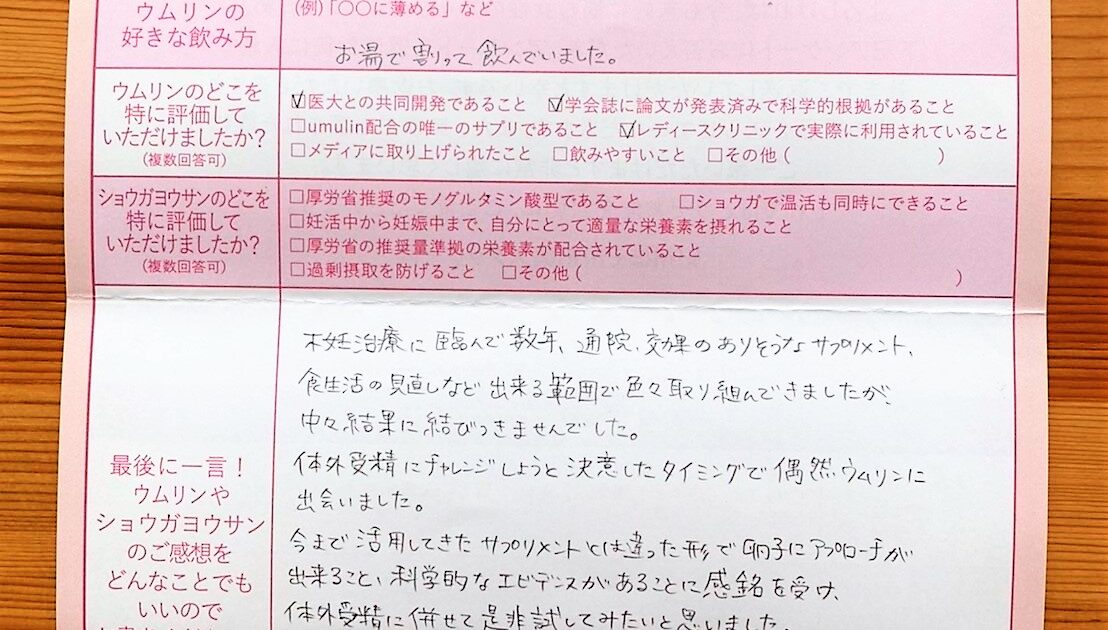 ウムリンの
好きな飲み方
(例)「〇〇に薄める」など
お湯で割って飲んでいました。
ウムリンのどこを
特に評価して
いただけましたか?
(複数回答可)
☑医大との共同開発であること ☑学会誌に論文が発表済みで科学的根拠があること
□umulin配合の唯一のサプリであること ☑レディースクリニックで実際に利用されていること
□メディアに取り上げられたこと □飲みやすいこと □その他( )
ショウガヨウサンのどこを
特に評価して
いただけましたか?
(複数回答可)
□厚労省推奨のモノグルタミン酸型であること □ショウガで温活も同時にできること
□妊活中から妊娠中まで、自分にとって適量な栄養素を摂れること
□厚労省の推奨量準拠の栄養素が配合されていること
□過剰摂取を防げること □その他( )
最後に一言!
ウムリンや
ショウガヨウサン
のご感想を
どんなことでも
いいので
不妊治療に臨んで数年、通院、効果のありそうなサプリメント、
食生活の見直しなど出来る範囲で色々取り組んできましたが、
中々結果に結びつきませんでした。
体外受精にチャレンジしようと決意したタイミングで偶然ウムリンに
出会いました。
今まで活用してきたサプリメントとは違った形で卵子にアプローチが
出来ること、科学的なエビデンスがあることに感銘を受け、
体外受精に併せて是非試してみたいと思いました。